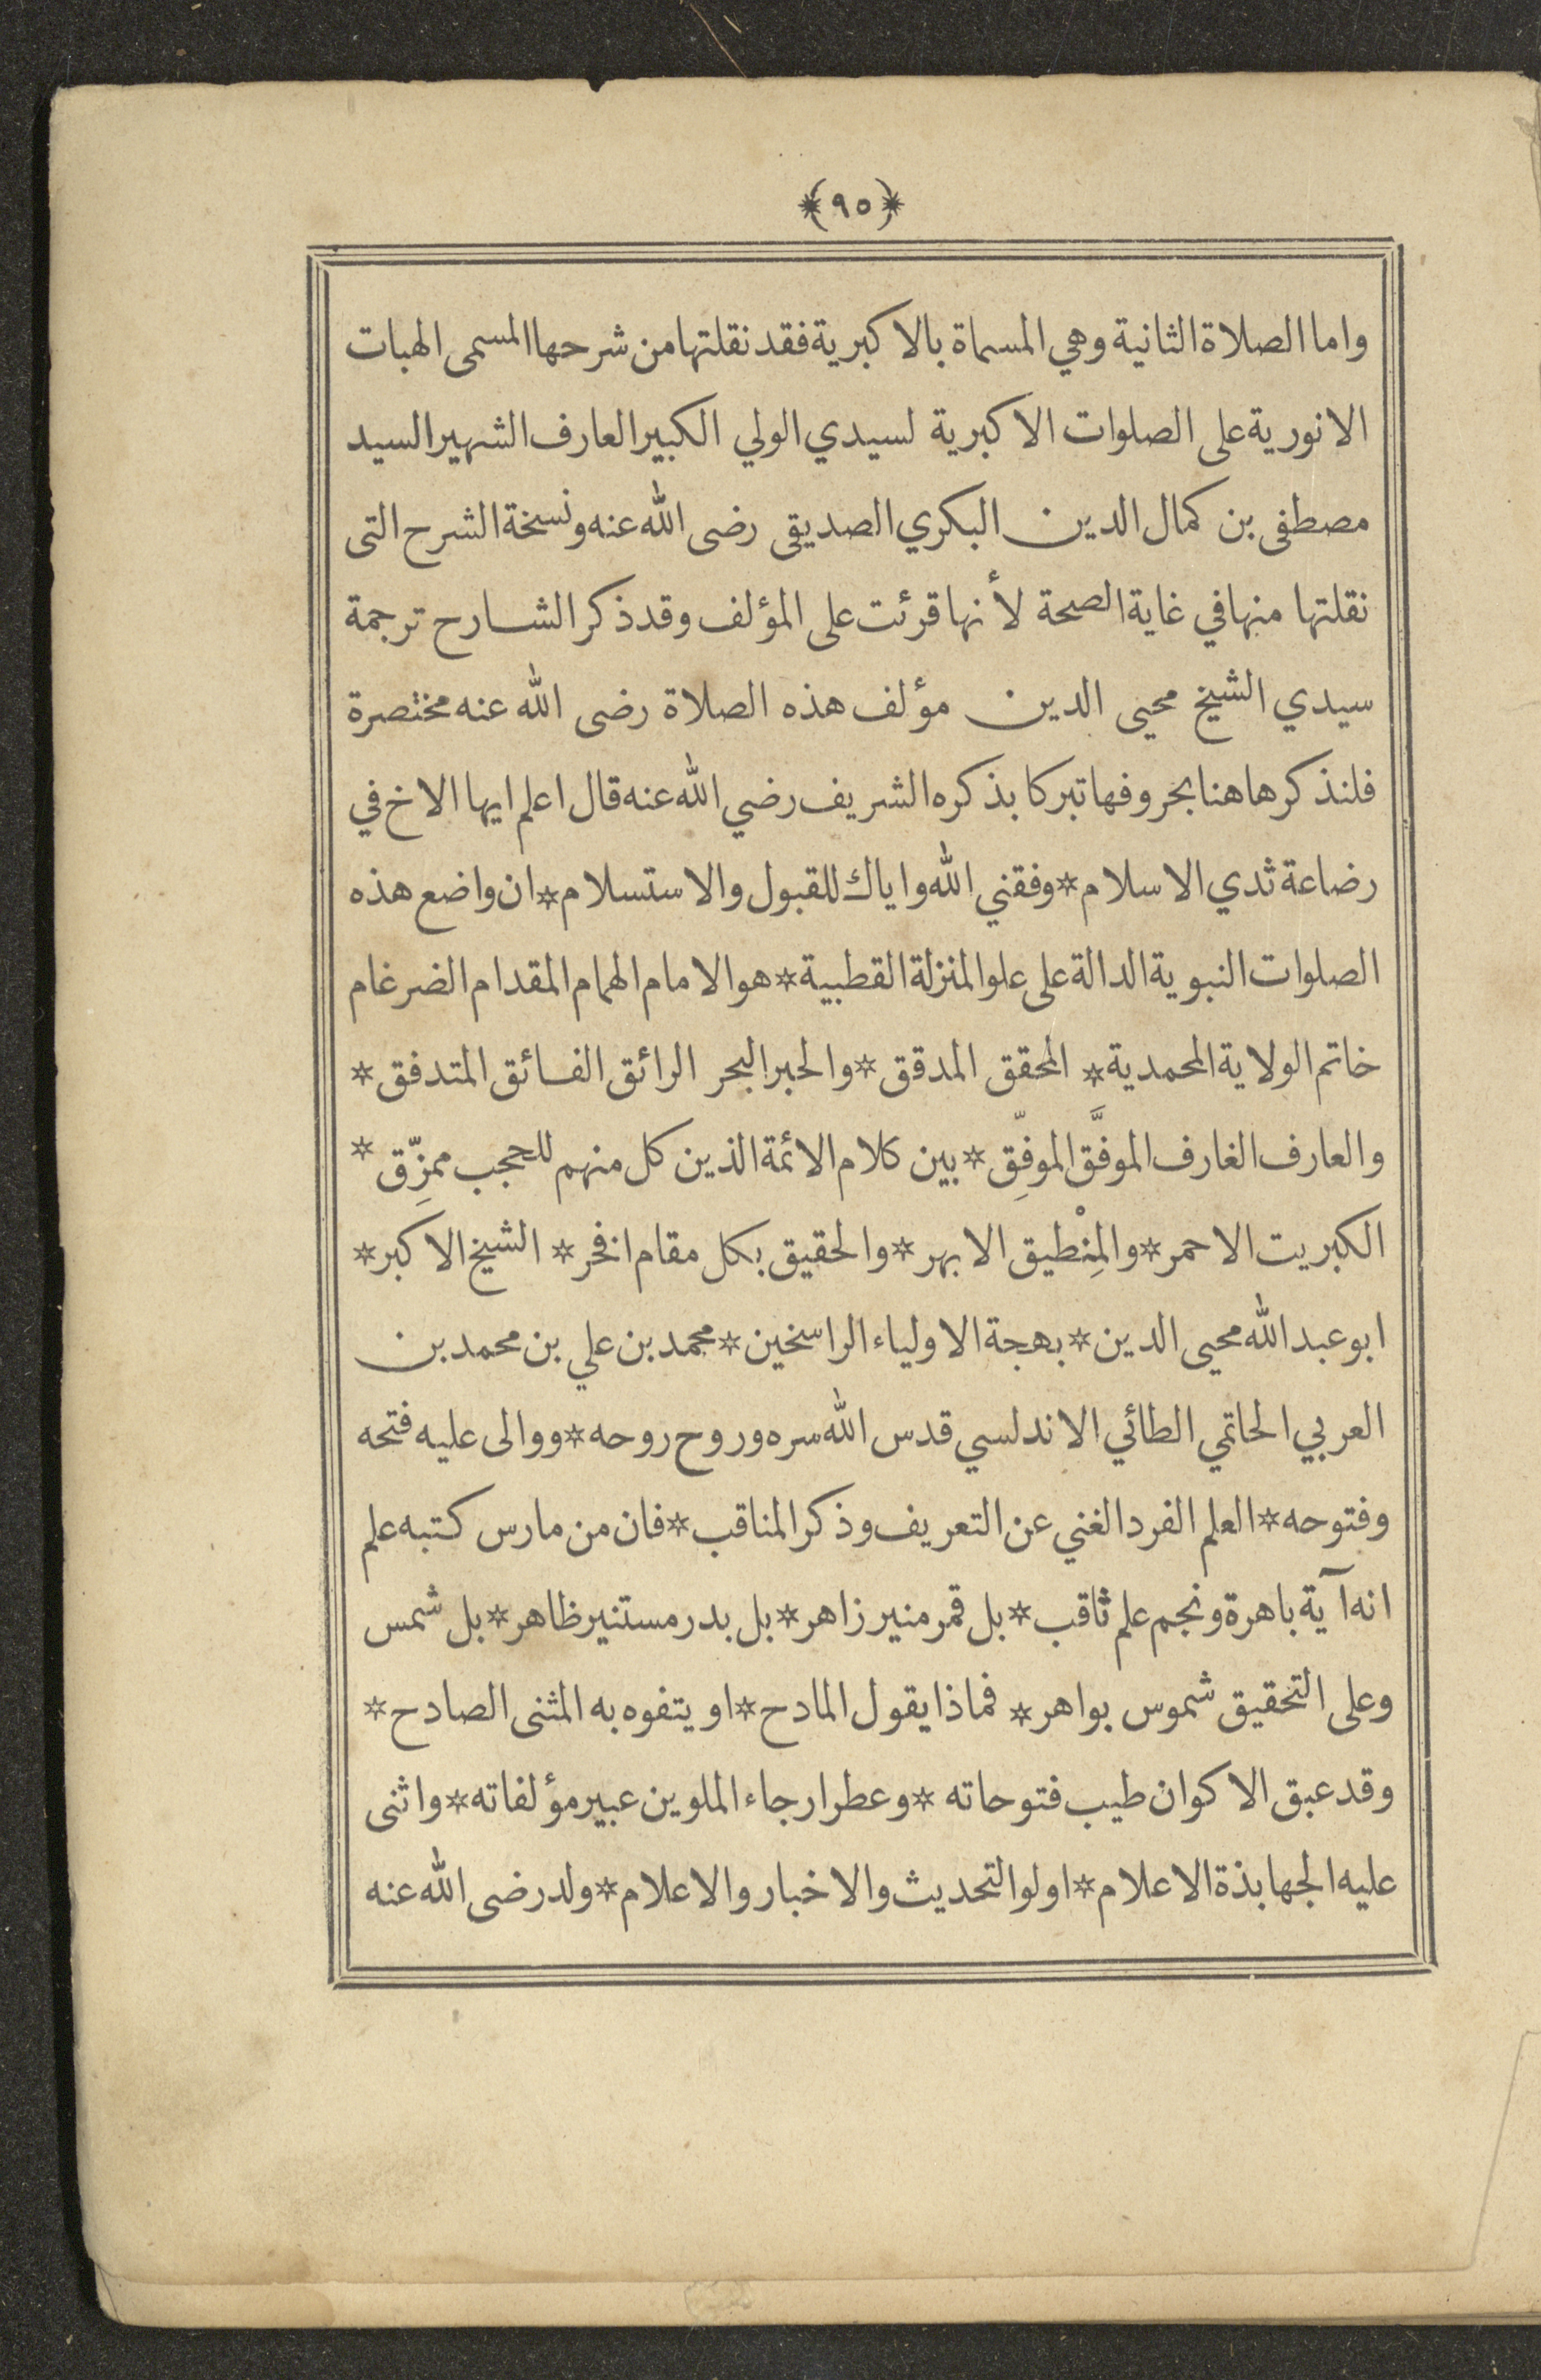 ﴿٩٥﴾
واما الصلاة الثانية وهي المسماة بالاكبرية فقد نقلتها من شرحها المسمى الهبات
الانورية على الصلوات الاكبرية لسيدي الولي الكبير العارف الشهير السيد
مصطفى بن كمال الدين البكري الصديقى رضى الله عنه ونسخة الشرح التى
نقلتها منها في غاية الصحة لأنها قرئت على المؤلف وقد ذكر الشارح ترجمة
سيدي الشيخ محيى الدين مؤلف هذه الصلاة رضى الله عنه مختصرة
فلنذكرها هنا بحروفها تبركا بذكره الشريف رضي الله عنه قال اعلم ايها الاخ في
رضاعة ثدي الاسلام * وفقني الله واياك للقبول والاستسلام * ان واضع هذه
الصلوات النبوية الدالة على علو المنزلة القطبية * هو الامام الهمام المقدام الضرغام
خاتم الولاية المحمدية * المحقق المدقق * والحبر البحر الرائق الفائق المتدفق *
والعارف الغارف الموفَّق الموفِّق * بين كلام الائمة الذين كل منهم للحجب ممزِّق *
الكبريت الاحمر * والمِنْطيق الابهر * والحقيق بكل مقام افخر * الشيخ الاكبر *
ابو عبد الله محيى الدين * بهجة الاولياء الراسخين * محمد بن علي بن محمد بن
العربي الحاتمي الطائي الاندلسي قدس الله سره وروح روحه * ووالى عليه فتحه
وفتوحه * العلم الفرد الغني عن التعريف وذكر المناقب * فان من مارس كتبه علم
انه آية باهرة ونجم علم ثاقب * بل قمر منير زاهر * بل بدر مستنير ظاهر * بل شمس
وعلى التحقيق شموس بواهر * فماذا يقول المادح * او يتفوه به المثنى الصادح *
وقد عبق الاكوان طيب فتوحاته * وعطر ارجاء الملوين عبير مؤلفاته * واثنى
عليه الجهابذة الاعلام * اولوا التحديث والاخبار والاعلام * ولد رضى الله عنه